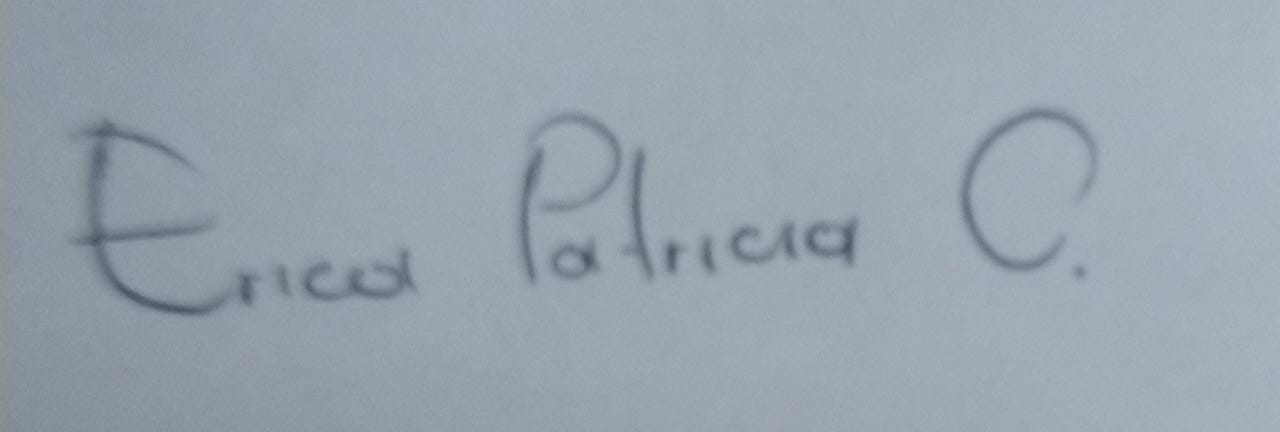 Erica Patricia C.